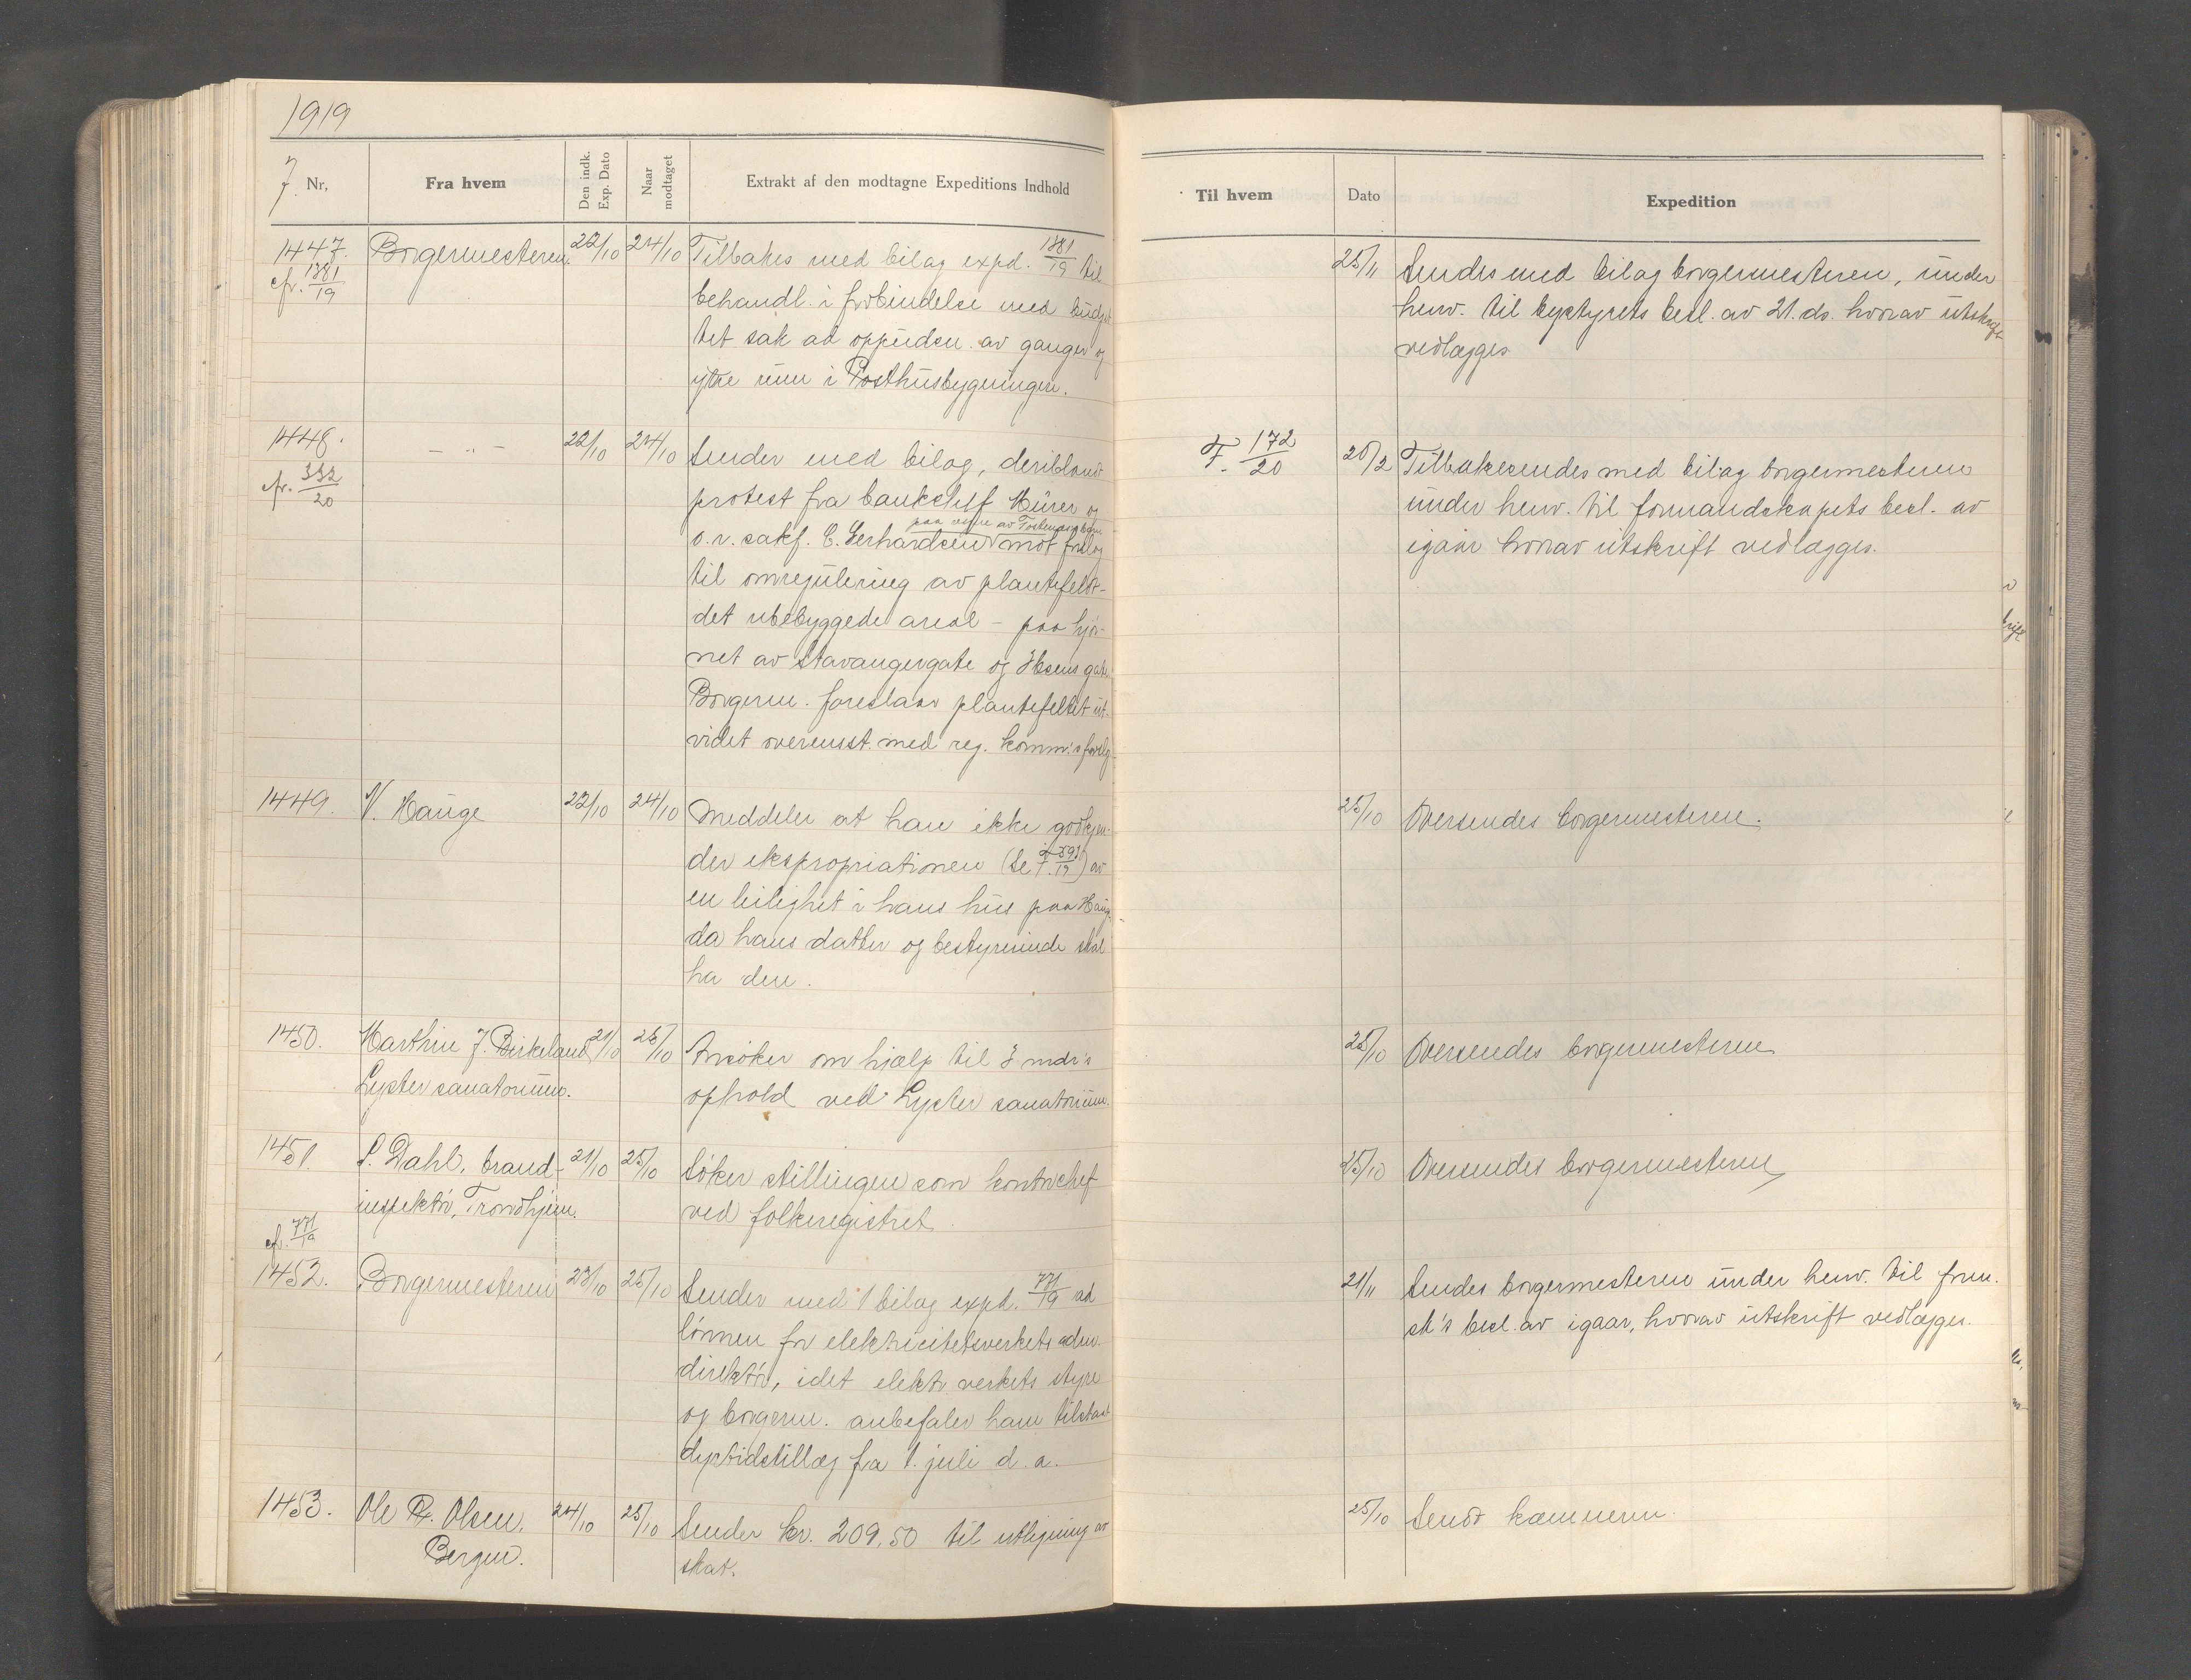 1919
J. Nr,
Fra hvem
Den indk. Exp. Dato
Naar modtaget
Extrakt af den modtagne Expeditions Indhold
Til hvem
Dato
Expedition
1447. Borgermesteren. 22/10 24/10 Tilbakes med bilag expd. 1381/19 til
cfr. 1381/19
behandl. i forbindelse med budget
tet sak ad oppudsn. av ganger og
ytre rum i Posthusbygningen.
25/11 Sendes med bilag borgermesteren, under
henv. til bystyrets besl. av 21. ds. hvorav utskrift
vedlægges.
1448. — „ — 22/10 24/10 Sender med bilag, deriblandt
cfr. 332/20
protest fra bankchef Hürer og
paa vegne av
o.r. sakf. C. Gerhardsen mot forslag
til omregulering av plantefelt-
det ubebyggede areal - paa hjør-
net av Stavangergate og Ibsens gate
Borgerm. foreslaar plantefeltet ut-
videt overensst. med reg. komm.'s forslg.
F. 172/20 20/2 Tilbakesendes med bilag borgermesteren
under henv. til formandskapets besl. av
igaar hvorav utskrift vedlægges.
1449. V. Hauge 22/10 24/10 Meddeler at han ikke godkjen-
der ekspropriationen (Se F. 893/19) av
en leilighet i hans hus paa Haug.
da hans datter og bestyrerinde skal
ha den.
25/10 Oversendes borgermesteren.
1450. Marthin J. Birkeland, 21/10 25/10 Ansøker om hjælp til 3 mdr's
Lyster sanatorium.
ophold ved Lyster sanatorium.
25/10 Oversendes borgermesteren
1451. S. Dahl, brand- 21/10 25/10 Søker stillingen som kontorchef
inspektør, Trondhjem.
ved folkeregistret.
25/10 Oversendes borgermesteren
cfr. 771/19
1452. Borgermesteren 23/10 25/10 Sender med 1 bilag expd. 771/19 ad
lønnen for elektricitetsverkets adm.
direktør, idet elektr verkets styre
og borgerm. anbefaler ham tilstaat
dyrtidstillæg fra 1. juli d. a.
21/11 Sendes borgermesteren under henv. til form.
sk's besl. av igaar, hvorav utskrift vedlægges.
1453. Ole R. Olsen, 24/10 25/10 Sender kr. 209,50 til utligning av
Bergen.
skat.
25/10 Sendt kæmneren.